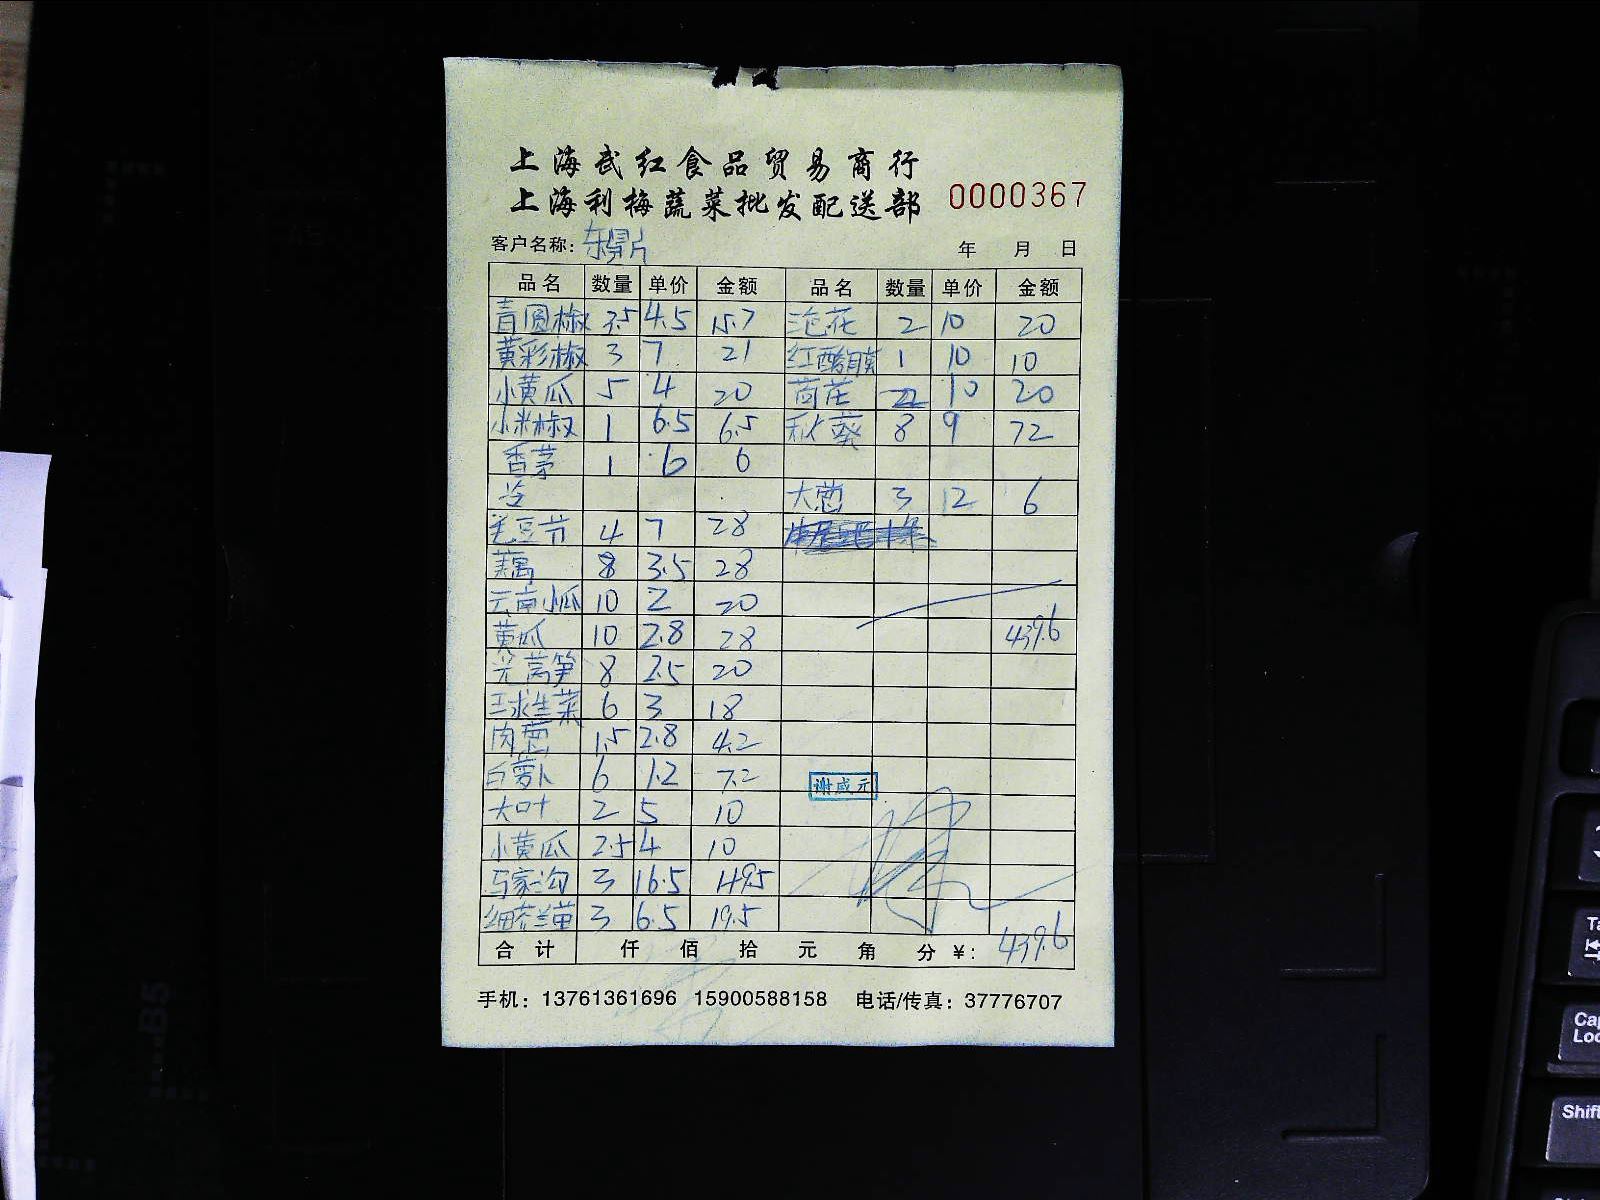 上海武红食品贸易商行
上海利梅蔬菜批发配送部 0000367
客户名称： 年 月 日
品名 数量 单价 金额 品名 数量 单价 金额
青圆椒 3.5 4.5 15.7 泡花 2 10 20
黄彩椒 3 7 21 红醋 1 10 10
小黄瓜 5 4 20 荷花 2 10 20
小米椒 1 6.5 6.5 秋葵 8 9 72
香茅 1 6 6
大葱 3 12 6
毛豆节 4 7 28
藕 8 3.5 28
云南小瓜 10 2 20
黄瓜 10 2.8 28 439.6
光莴笋 8 2.5 20
球生菜 6 3 18
肉葱 1.5 2.8 4.2
白萝卜 6 1.2 7.2 谢威元
大叶 2 5 10
小黄瓜 2.5 4 10
马家沟 3 16.5 49.5
细芥兰苗 3 6.5 19.5
合计 仟 佰 拾 元 角 分 ¥: 439.6
手机：13761361696 15900588158 电话/传真：37776707
B5
Shift